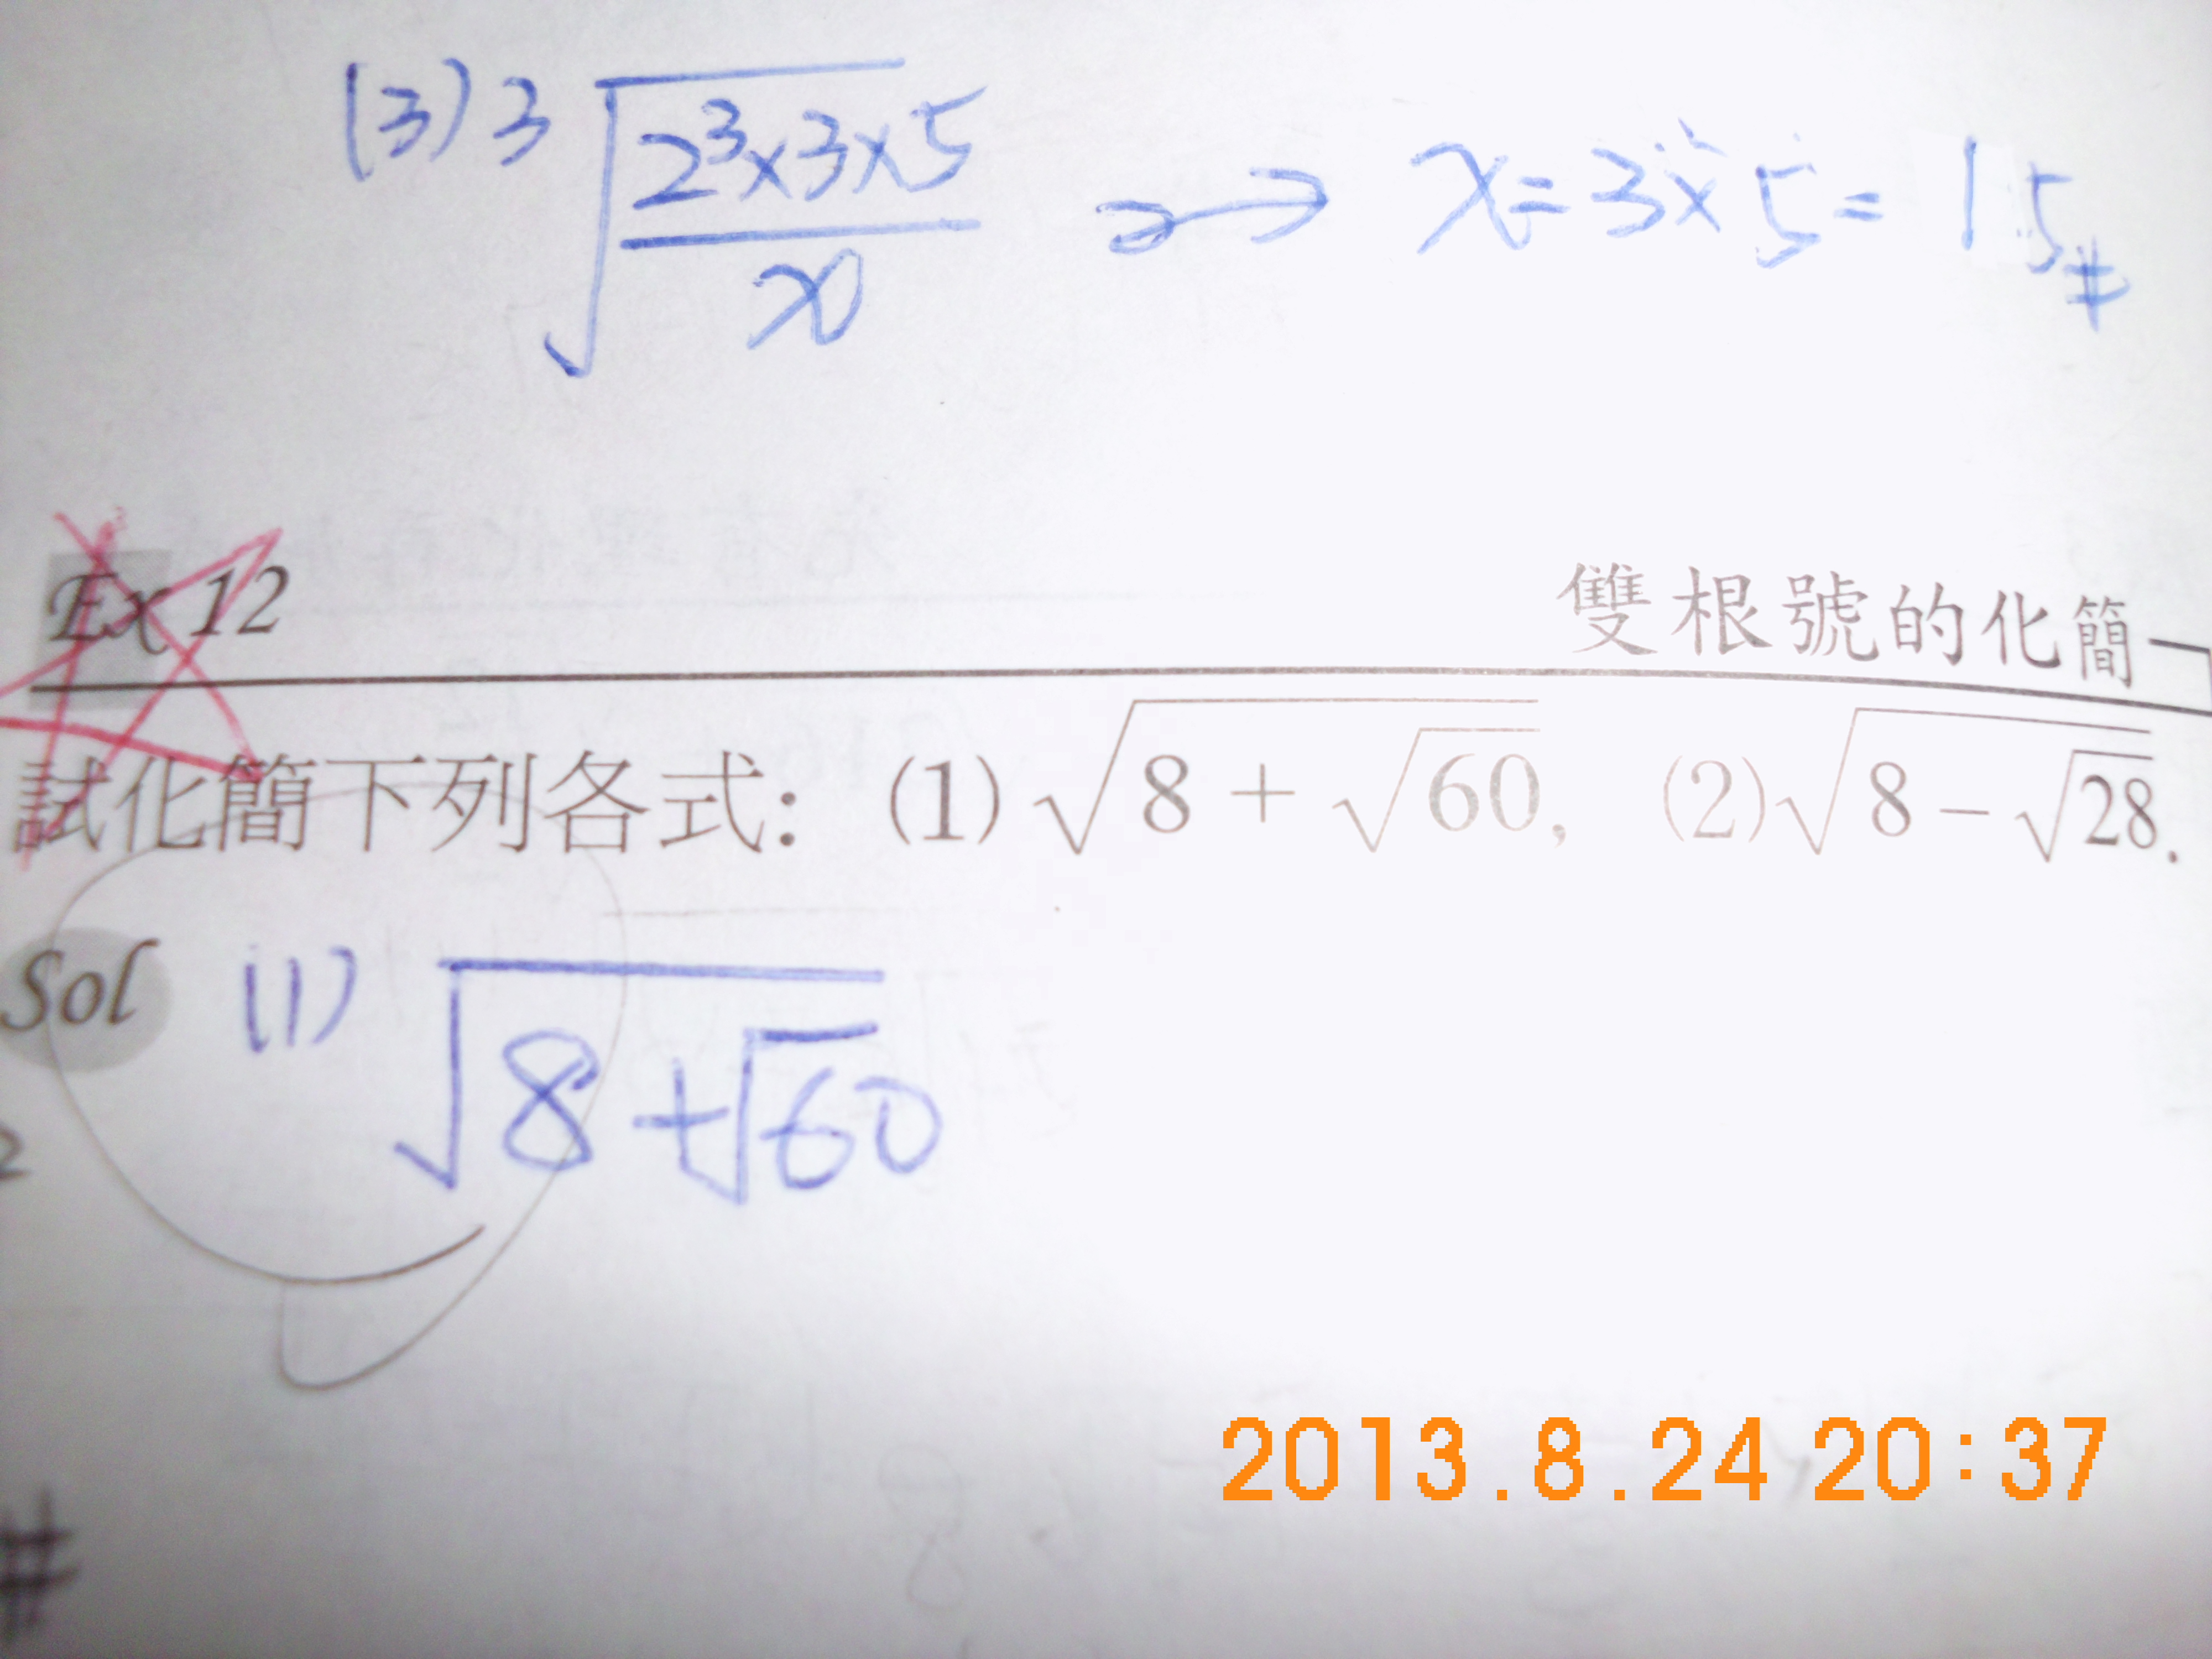 (3) ³√(2³×3×5/x) → x=3×5=15#
Ex 12 雙根號的化簡
試化簡下列各式: (1) √(8 + √60), (2) √(8 − √28).
Sol (1) √(8+√60)
2
#
2013.8.24 20:37